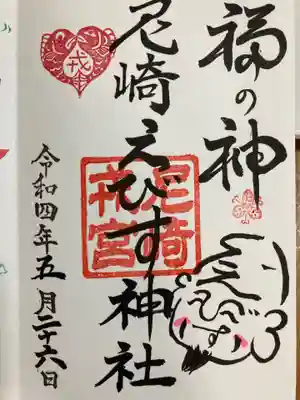 福の神
尼崎えびす神社
尼崎
戎宮
戎
令和四年五月二十六日
えびす